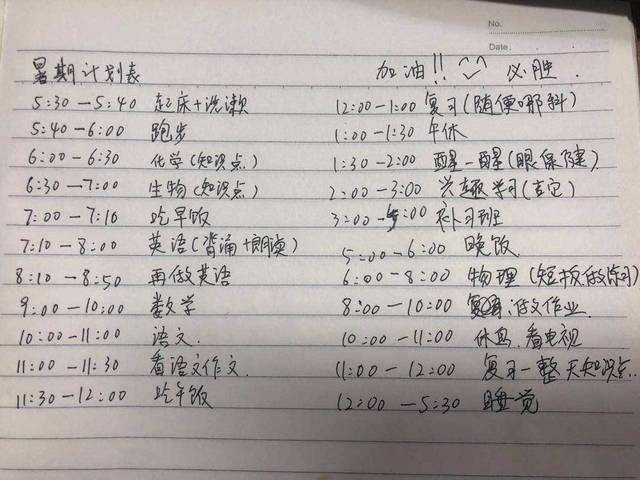 No.
Date.
暑期计划表 加油!! 必胜.
5:30—5:40 起床+洗漱
5:40—6:00 跑步
6:00—6:30 化学(知识点)
6:30—7:00 生物(知识点)
7:00—7:10 吃早饭
7:10—8:00 英语(背诵+朗读)
8:10—8:50 再做英语
9:00—10:00 数学
10:00—11:00 语文.
11:00—11:30 看语文作文.
11:30—12:00 吃午饭
12:00—1:00 复习(随便哪科)
1:00—1:30 午休
1:30—2:00 醒一醒(眼保健)
2:00—3:00 兴趣学习(吉它)
3:00—5:00 补习班
5:00—6:00 晚饭
6:00—8:00 物理(短板做练习)
8:00—10:00 做文作业
10:00—11:00 休息.看电视
11:00—12:00 复习一整天知识点..
12:00—5:30 睡觉